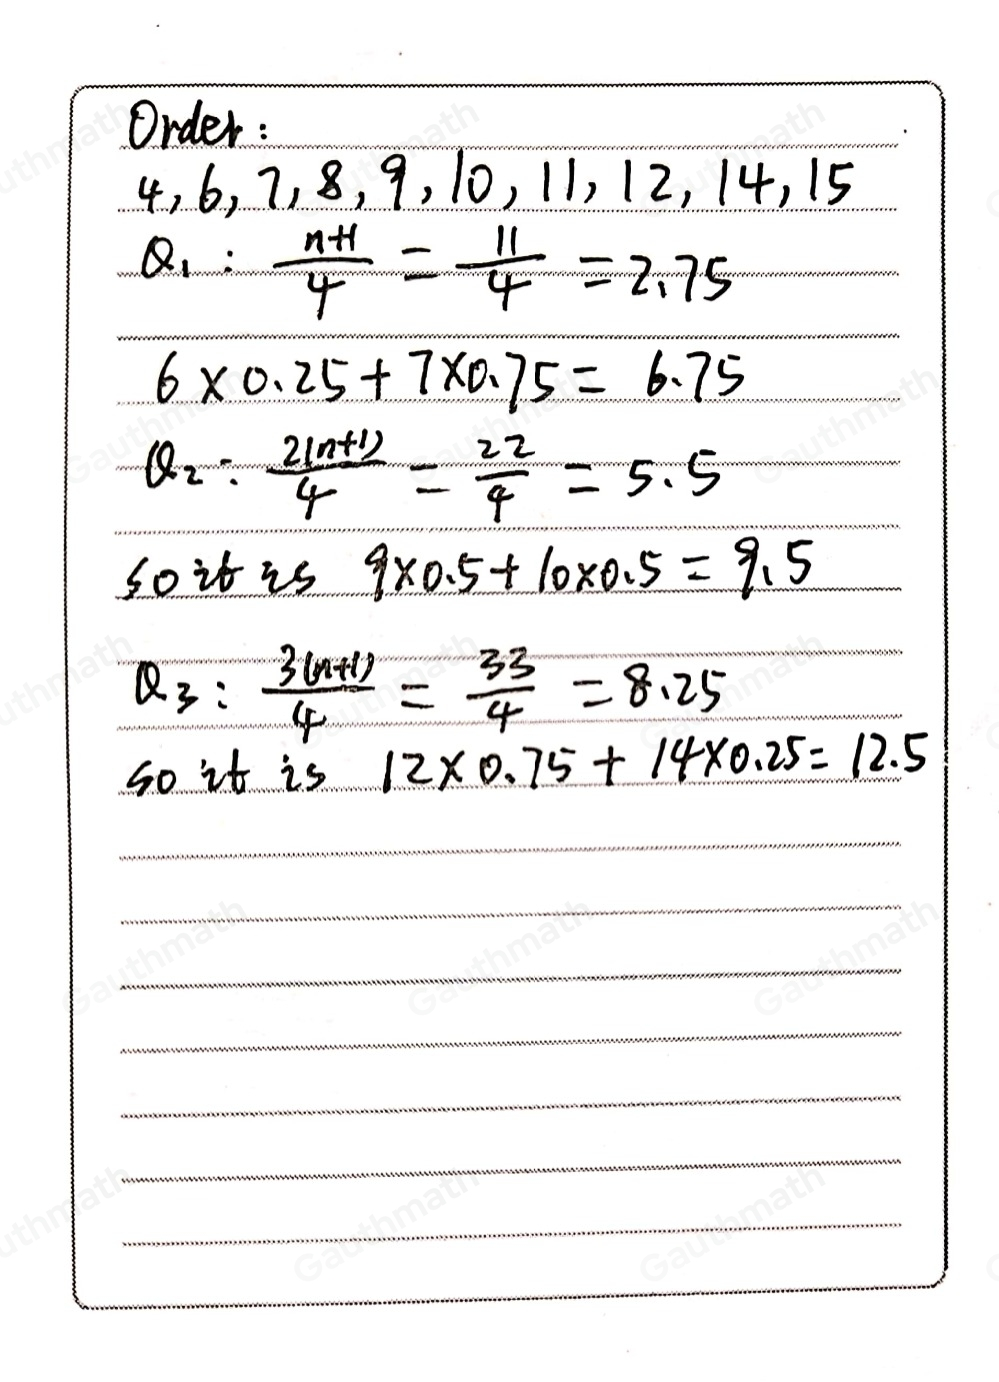 Order:
4, 6, 7, 8, 9, 10, 11, 12, 14, 15
Q₁: (n+1)/4 = 11/4 = 2.75
6 × 0.25 + 7×0.75 = 6.75
Q₂: 2(n+1)/4 = 22/4 = 5.5
so it is 9×0.5 + 10×0.5 = 9.5
Q₃: 3(n+1)/4 = 33/4 = 8.25
so it is 12×0.75 + 14×0.25 = 12.5
Gauthmath